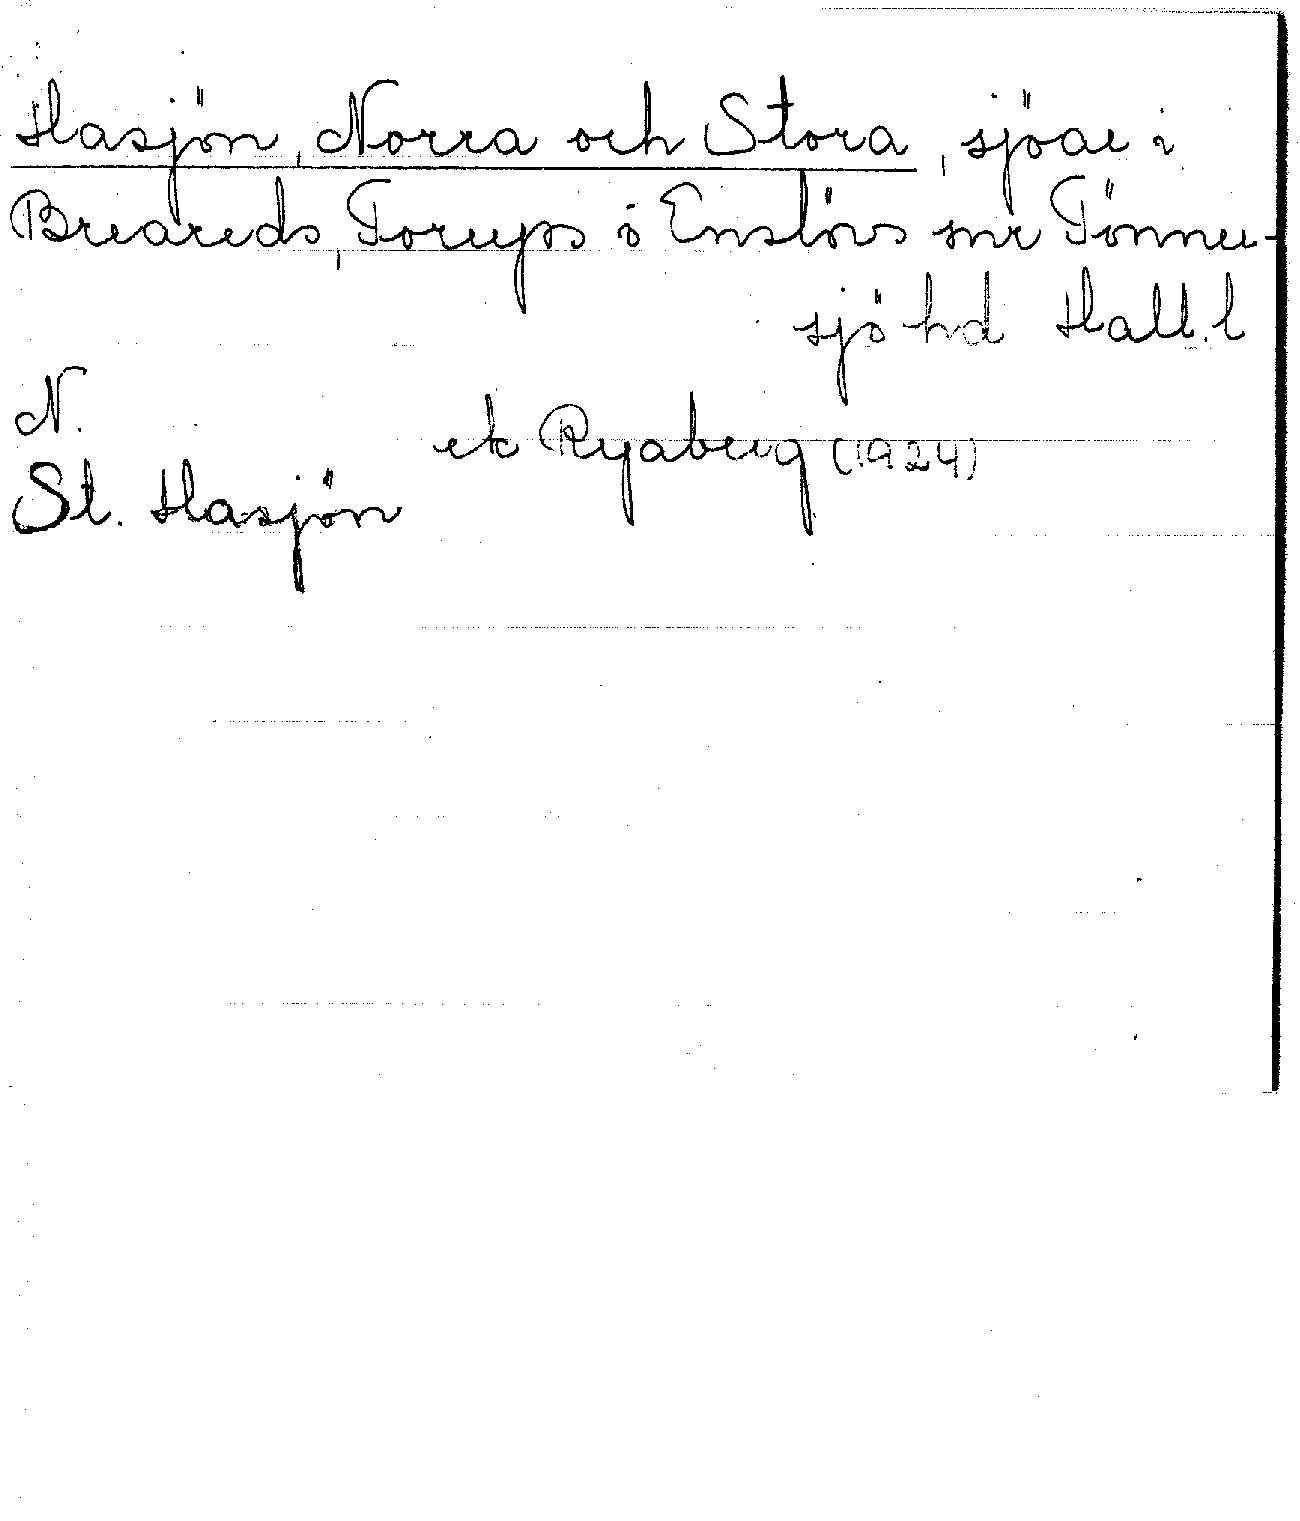 Hasjön, Norra och Stora, sjöar i
Breareds, Torups o Enslövs snr Tönner-
sjö hd Hall. l
N.
ek Ryaberg (1924)
St. Hasjön